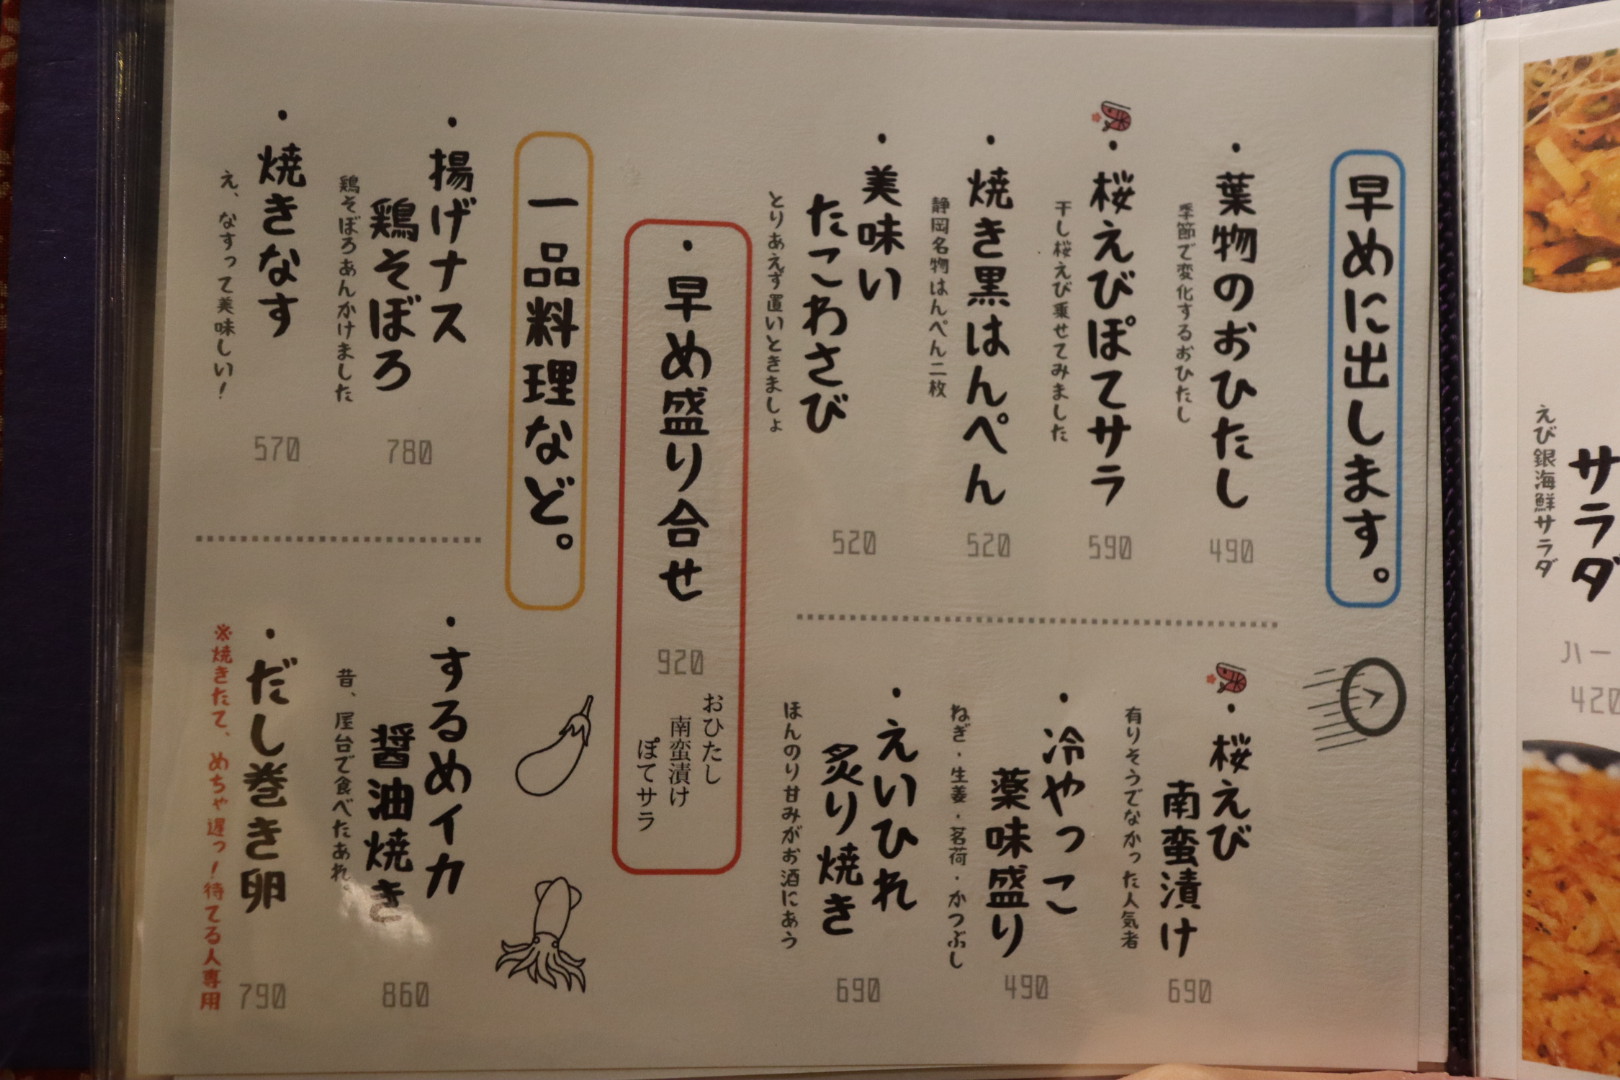 早めに出します。
・葉物のおひたし
季節で変化するおひたし
490
・桜えびぽてサラ
干し桜えび乗せてみました
590
・焼き黒はんぺん
静岡名物はんぺん二枚
520
・美味い
たこわさび
とりあえず置いときましょ
520
・桜えび
南蛮漬け
有りそうでなかった人気者
690
・冷やっこ
薬味盛り
ねぎ・生姜・茗荷・かつぶし
490
・えいひれ
炙り焼き
ほんのり甘みがお酒にあう
690
・早め盛り合せ
920
おひたし
南蛮漬け
ぽてサラ
一品料理など。
・揚げナス
鶏そぼろ
鶏そぼろあんかけました
780
・焼きなす
え、なすって美味しい!
570
・するめイカ
醤油焼き
昔、屋台で食べたあれ。
860
・だし巻き卵
※焼きたて、めちゃ遅っ!待てる人専用
790
サラダ
えび銀海鮮サラダ
ハー
420